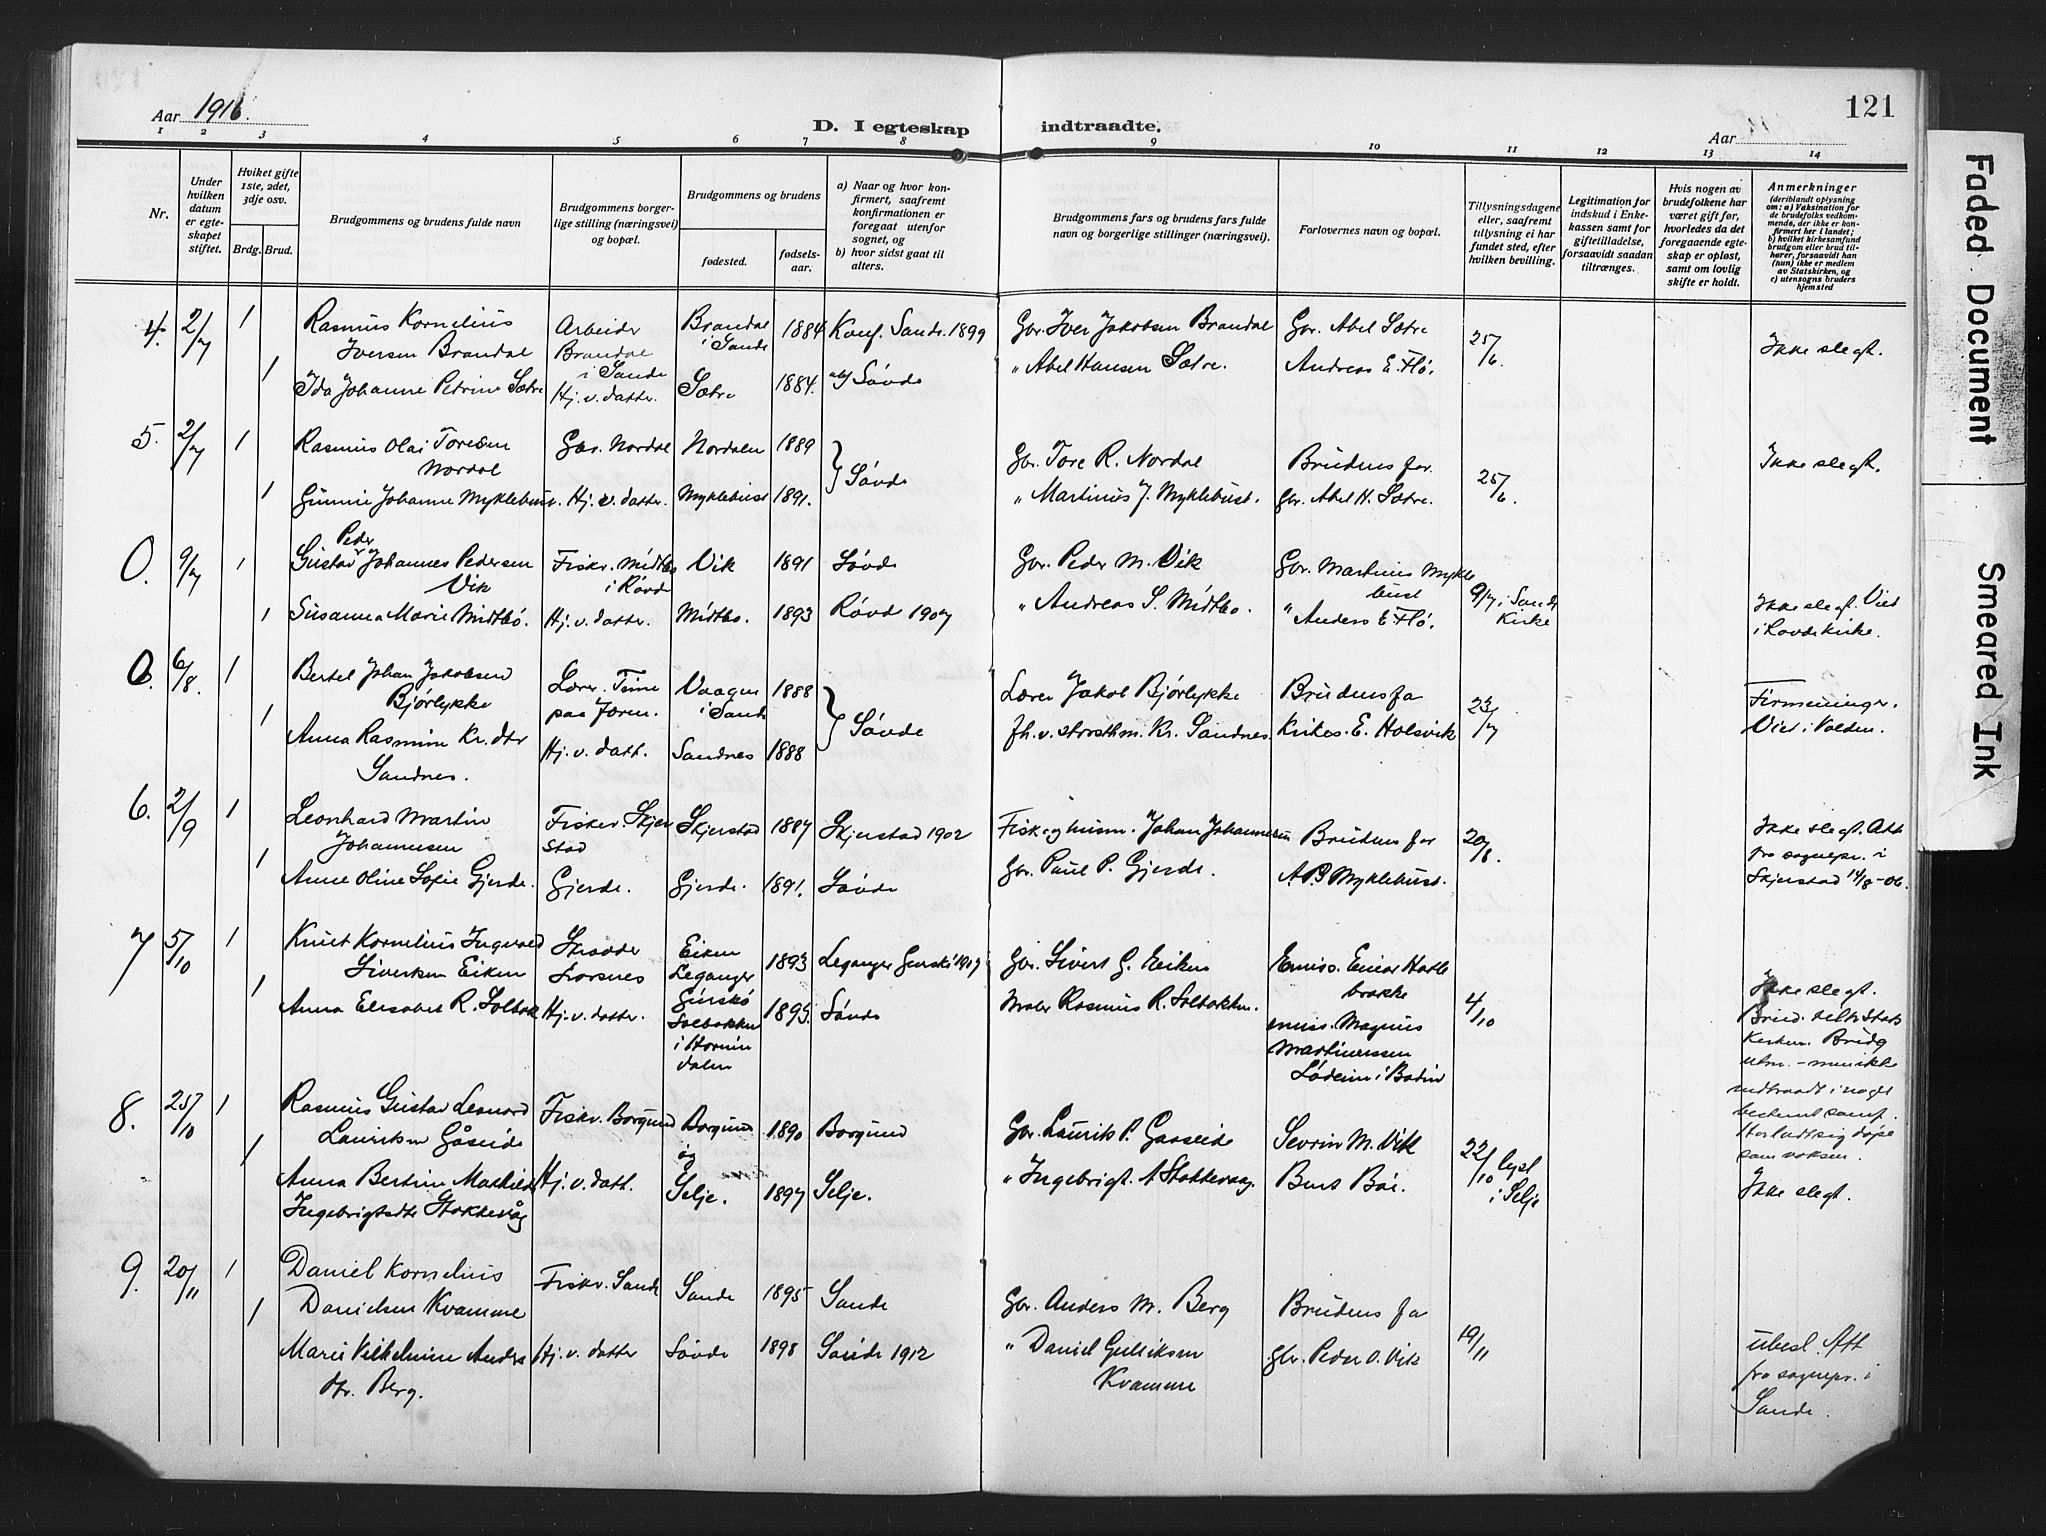 Aar 1916.
D. I egteskap indtraadte.
Aar
121
1 2 3 4 5 6 7 8 9 10 11 12 13 14
Nr.
Under hvilken datum er egteskapet stiftet.
Hviket gifte 1ste, 2det, 3dje osv.
Brdg. Brud.
Brudgommens og brudens fulde navn
Brudgommens borgerlige stilling (næringsvei) og bopæl.
Brudgommens og brudens
fødested.
fødselsaar.
a) Naar og hvor konfirmert, saafremt konfirmationen er foregaat utenfor sognet, og
b) hvor sidst gaat til alters.
Brudgommens fars og brudens fars fulde navn og borgerlige stillinger (næringsvei).
Forlovernes navn og bopæl.
Tillysningsdagene eller, saafremt tillysning ei har fundet sted, efter hvilken bevilling.
Legitimation for indskud i Enkekassen samt for giftetilladelse, forsaavidt saadan tiltrænges.
Hvis nogen av brudefolkene har været gift før, hvorledes da det foregaaende egteskap er opløst, samt om lovlig skifte er holdt.
Anmerkninger
(deriblandt oplysning om: a) Vaksination for de brudefolks vedkommende, der ikke er konfirmert her i landet; b) hvilket kirkesamfund brudgom eller brud tilhører, forsaavidt han (hun) ikke er medlem av Statskirken, og c) utensogns bruders hjemsted
4. 2/7 1
Rasmus Kornelius Iversen Brandal
Arbeider Brandal i Sande
Brandal i Sande
1884
Konf. Sande 1899
Gbr. Iver Jakobsen Brandal
Gbr. Abel Sætre
25/6
Ikke slegt.
1
Ida Johanne Petrine Sætre
Hj. v. datter.
Sætre
1884.
Søvde
" Abel Hansen Sætre.
Andreas E. Flø.
5. 2/7 1
Rasmus Olai Toresen Nordal
Gbr. Nordal
Nordalen
1889
Søvde
Gbr. Tore R. Nordal
Brudens far
25/6
Ikke slegt.
1
Gunnie Johanne Myklebust.
Hj. v. datter.
Myklebust
1891.
" Martinus J. Myklebust.
gbr. Abel H. Sætre.
0. 9/7 1
Peder
Gustav Johannes Pedersen Vik
Fiskr. Midtbø i Røvd
Vik
1891
Søvde
Gbr. Peder M. Vik
Gbr. Martinus Myklebust
9/7 i Sande Kirke
Ikke slegt. Vied i Rovde Kirke.
1
Susanna Marie Midtbø.
Hj. v. datter.
Midtbø.
1893
Røvd 1907
" Andreas S. Midtbø.
" Anders E. Flø.
0. 6/8. 1
Bertel Johan Jakobsen Bjørlykke
Lærer. Time paa Jæren.
Vaagen i Sande
1888
Søvde
Lærer Jakob Bjørlykke
Brudens fa
23/7
Firmenninger. Vied i Volden.
1
Anna Rasmine Kr. dtr Sandnes.
Hj. v. datt.
Sandnes
1888
fh. v. storthm. Kr. Sandnes.
Krikes. E. Holsvik
6. 2/9 1
Leonhard Martin Johannesen
Fisker. Skjerstad
Skjerstad
1887
Skjerstad 1902
Fisk. og husm. Johan Johannesen
Brudens far
20/8.
Ikke slegt. Att. fra sognepr. i Skjerstad 14/8-06.
1
Anne Oline Sofie Gjerde.
Gjerde.
Gjerde.
1891.
Søvde
Gbr. Paul P. Gjerde.
A. B Myklebust.
7 5/10 1
Knut Kornelius Ingvald Siversen Eiken
Skrædder
Eiken Leganger Gurskø
1893
Leganger Gurskø
Gbr. Sivert G. Eiken
Emiss. Einar Hatlebrakke
4/10
Ikke slegt.
1
Anna Elisabet R. Solbak
Hj. v. datter.
Solbakken i Hornindalen
1895.
Søvde
Maler Rasmus R. Solbakken.
emiss. Magnus Martinussen
i Bodin
bestemt samf.
som voksen.
8. 25/10 1
Rasmus Gustav Leonard Lauritsen Gåseide
Fiskr. Borgund
Borgund
og
1890
Borgund
Gbr. Laurits P. Gaaseide
Sevrin M. Vik
22/10 lyst i Selje
Ikke slegt.
1
Anna Bertine Mathilde Ingebrigtsdtr Stokkevåg
Hj. v. datt.
Selje.
1897
Selje.
" Ingebrigt A Stokkevaag.
Bernt Bøe.
9. 20/11 1
Daniel Kornelius Danielsen Kvamme
Fiskr. Sande
Sande
1895
Sande
Gbr. Anders M. Berg
Brudens fa
19/11
ubesl. Att fra sognepr. i Sande.
1
Marie Vilhelmine Anders dtr. Berg.
Hj. v. datter
Søvde
1898
Søvde 1912
" Daniel Gulliksen Kvamme
gbr. Peder O. Vik
Faded Document
Smeared Ink